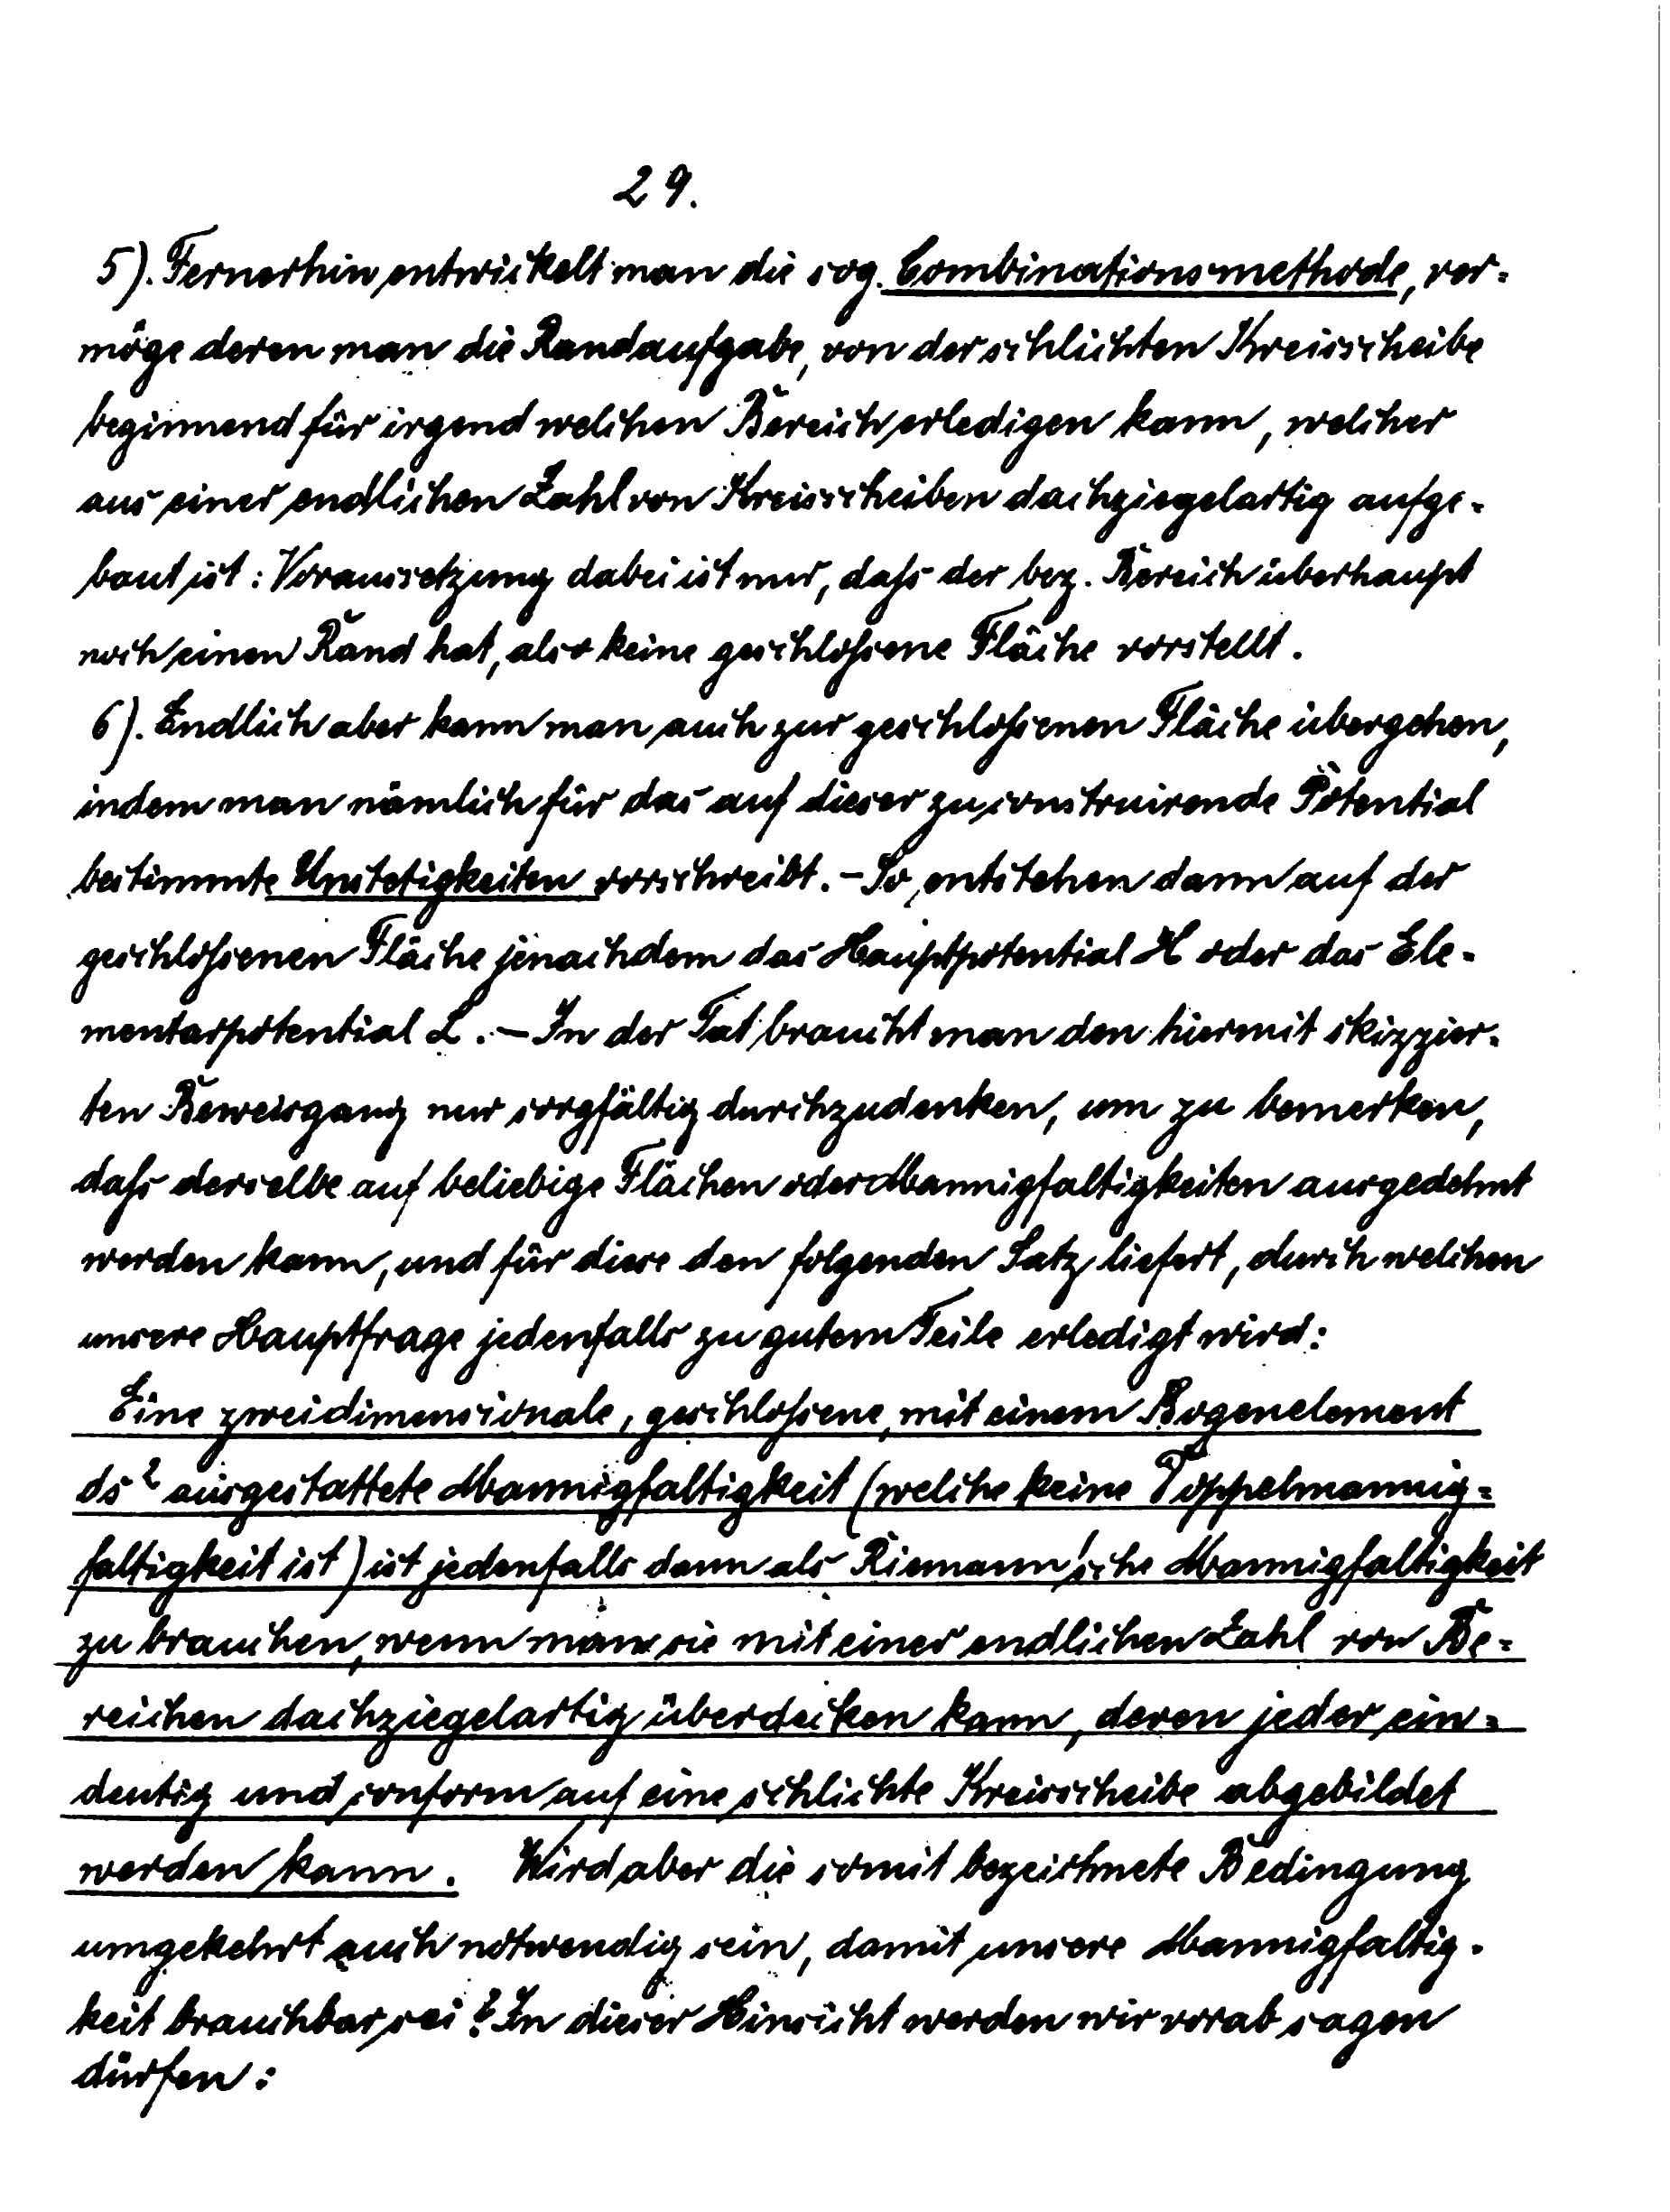 29.
5). Fernerhin entwickelt man die sog. Combinationsmethode, ver-
möge deren man die Randaufgabe, von der schlichten Kreisscheibe
beginnend für irgend welchen Bereich erledigen kann, welcher
aus einer endlichen Zahl von Kreisscheiben dachziegelartig aufge-
baut ist: Voraussetzung dabei ist nur, daſs der bez. Bereich überhaupt
noch einen Rand hat, also keine geschloſsene Fläche vorstellt.
6). Endlich aber kann man auch zur geschloſsenen Fläche übergehen,
indem man nämlich für das auf dieser zu construirende Potential
bestimmte Unstetigkeiten vorschreibt. – So entstehen dann auf der
geschloſsenen Fläche jenachdem das Hauptpotential H oder das Ele-
mentarpotential L. – In der Tat braucht man den hiermit skizzier-
ten Beweisgang nur sorgfältig durchzudenken, um zu bemerken,
daſs derselbe auf beliebige Flächen oder Mannigfaltigkeiten ausgedehnt
werden kann, und für diese den folgenden Satz liefert, durch welchen
unsere Hauptfrage jedenfalls zu gutem Teile erledigt wird:
Eine zweidimensionale, geschloſsene, mit einem Bogenelement
ds² ausgestattete Mannigfaltigkeit (welche keine Doppelmannig-
faltigkeit ist) ist jedenfalls dann als Riemann'sche Mannigfaltigkeit
zu brauchen, wenn man sie mit einer endlichen Zahl von Be-
reichen dachziegelartig überdecken kann, deren jeder ein-
deutig und conform auf eine schlichte Kreisscheibe abgebildet
werden kann. Wird aber die somit bezeichnete Bedingung
umgekehrt auch notwendig sein, damit unsere Mannigfaltig-
keit brauchbar sei? In dieser Hinsicht werden wir vorab sagen
dürfen: